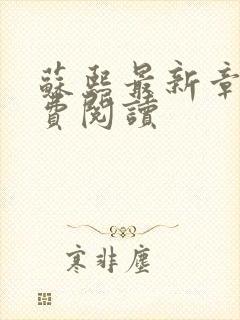 蘇熙最新章
費閱讀
寒非塵